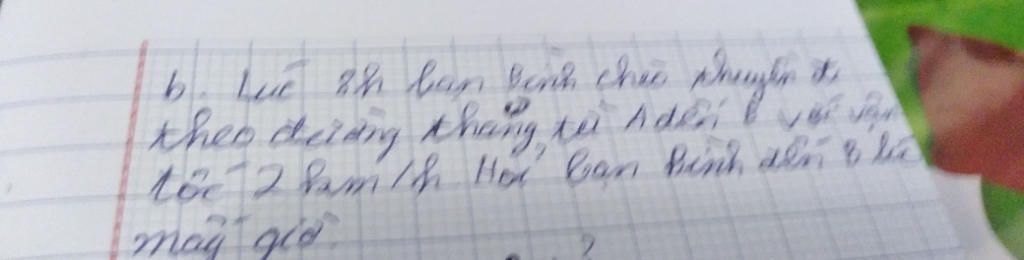 b. Lúc 8h bạn Bình chèo thuyền đi
theo đường thẳng từ A đến B với vận
tốc 2 km/h Hỏi bạn Bình đến B lúc
mấy giờ
?